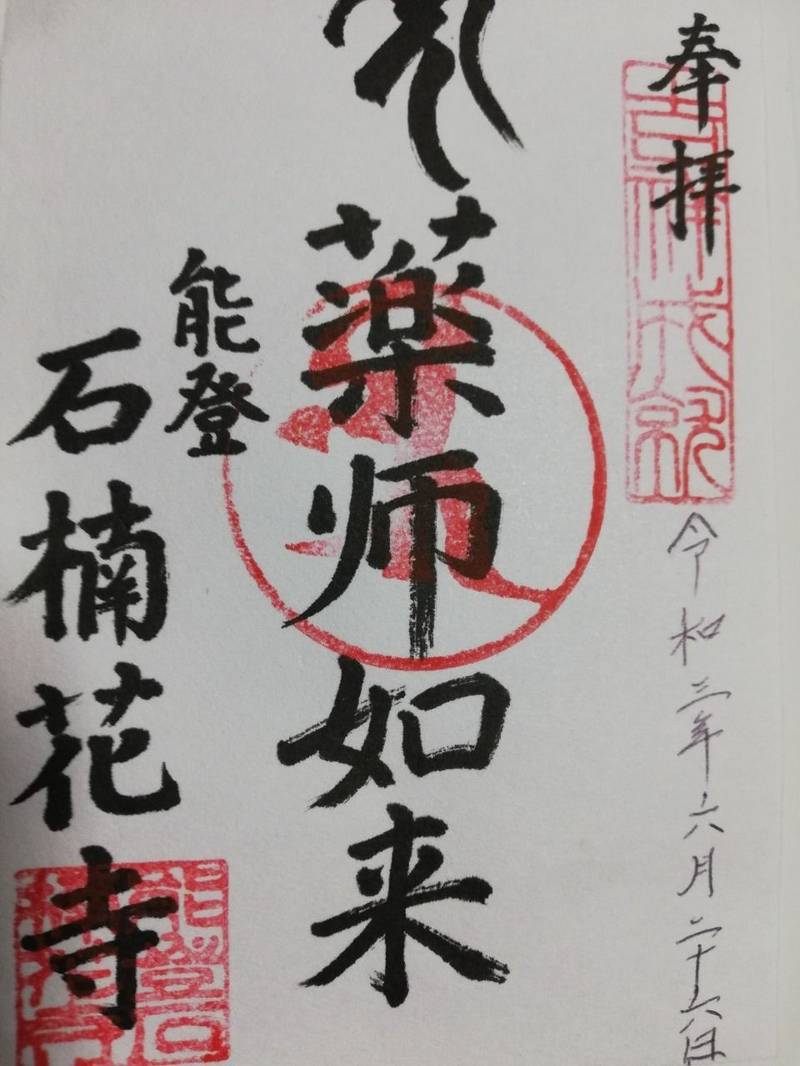 奉拝
令和三年六月二十六日
薬师如来
能登
石楠花寺